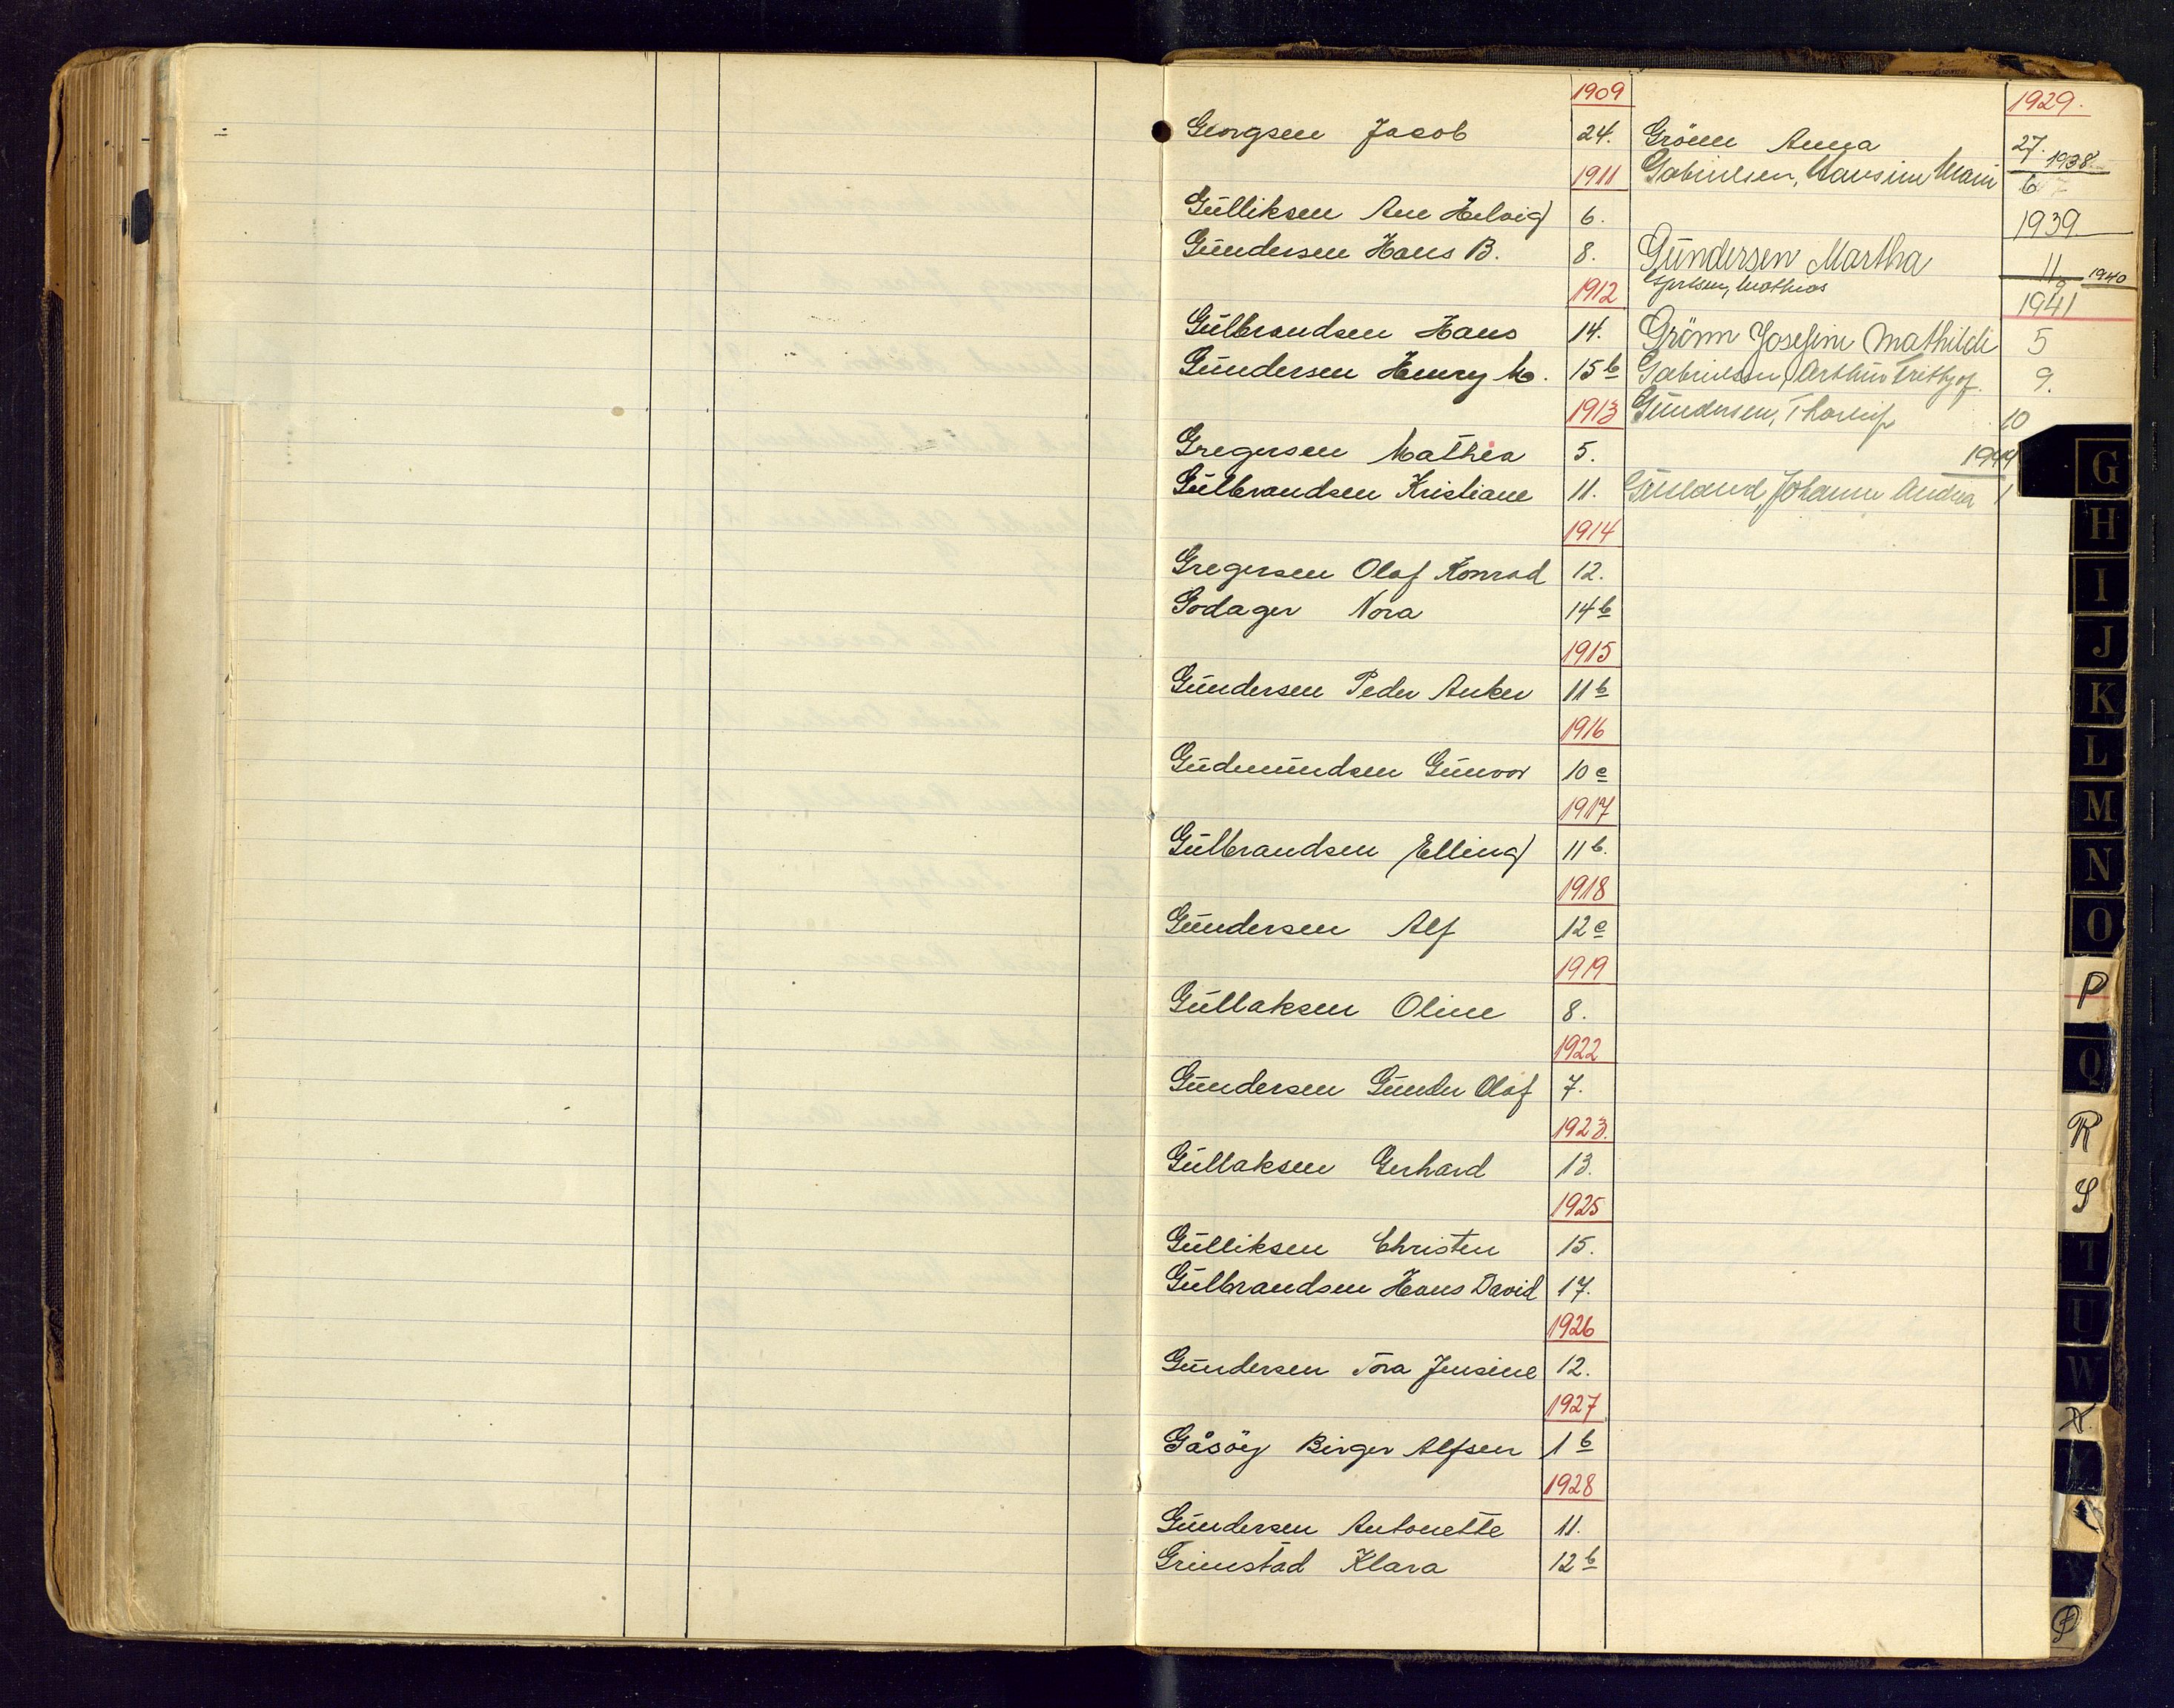 1909
Georgsen Jacob 24.
1911
Gulliksen Ane Helvig 6.
Gundersen Hans B. 8.
1912
Gulbrandsen Hans 14.
Gundersen Henry M. 15 b
1913
Gregersen Mathea 5.
Gulbrandsen Kristiane 11.
1914
Gregersen Olaf Konrad 12.
Godager Nora 14 b
1915
Gundersen Peder Anker 11 b
1916
Gudmundsen Gunvor 10 c
1917
Gulbrandsen Elling 11 b.
1918
Gundersen Alf 12 c
1919
Gullaksen Oline 8.
1922
Gundersen Gunder Olaf 7.
1923.
Gullaksen Gerhard 13.
1925
Gulliksen Christen 15.
Gulbrandsen Hans David 17.
1926
Gundersen Tora Jensine 12.
1927
Gåsöy Birger Alfsen 1 b
1928
Gundersen Antonette 11.
Grimstad Klara 12 b
1929.
Grönn Anna 27.
1938
Gabrielsen, Hansine Marie 6
1939
Gundersen Martha 11
1940
Gjertsen, Mathias
1941
Grönn Josefine Mathilde 5
Gabrielsen, Arthur Frithjof 9.
Gundersen, Thorleif 10
1944
Johanne Andrea 1
G
H
I
J
K
L
M
N
O
P
Q
R
S
T
U
W
X
Y
Ø